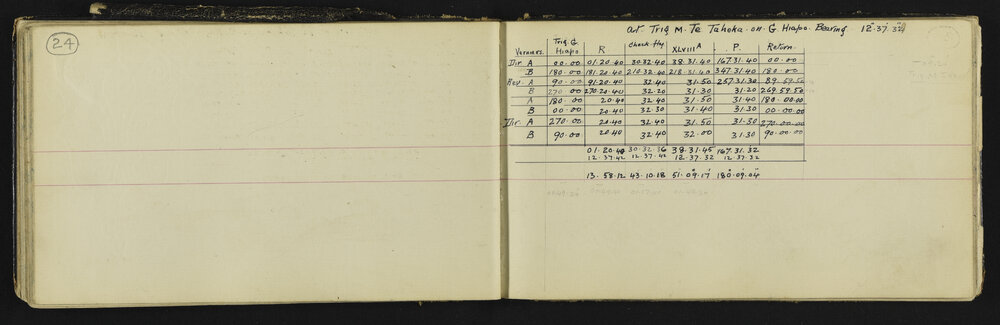 24
at Trig M. Te Tahoka on G Hiapo. Bearing 12°.37'.32"
Verniers. Trig. G Hiapo R Check Flg XLVIII A P. Return.
Dir. A 00.00 01.20.40 30 32.40 38.31.40 167.31.40 00.00
B 180.00 181.20.40 210.32.40 218.31.40 347.31.40 180.00
Rev. A 90.00 91.20.40 32.40 31.50 257.31.30 89.59.50
B 270.00 270.20.40 32.20 31.30 31.20 269.59.50
A 180.00 20.40 32.40 31.50 31.40 180.00.00
B 00.00 20.40 32.30 31.40 31.30 00.00.00
Dir. A 270.00 20.40 32.40 31.50 31.30 270.00.00
B 90.00 20.40 32.40 32.00 31.30 90.00.00
01.20.40 30.32.36 38.31.45 167.31.32
12.37.42 12.37.42 12.37.32 12.37.32
13.58.12 43.10.18 51.09.17 180.09.04